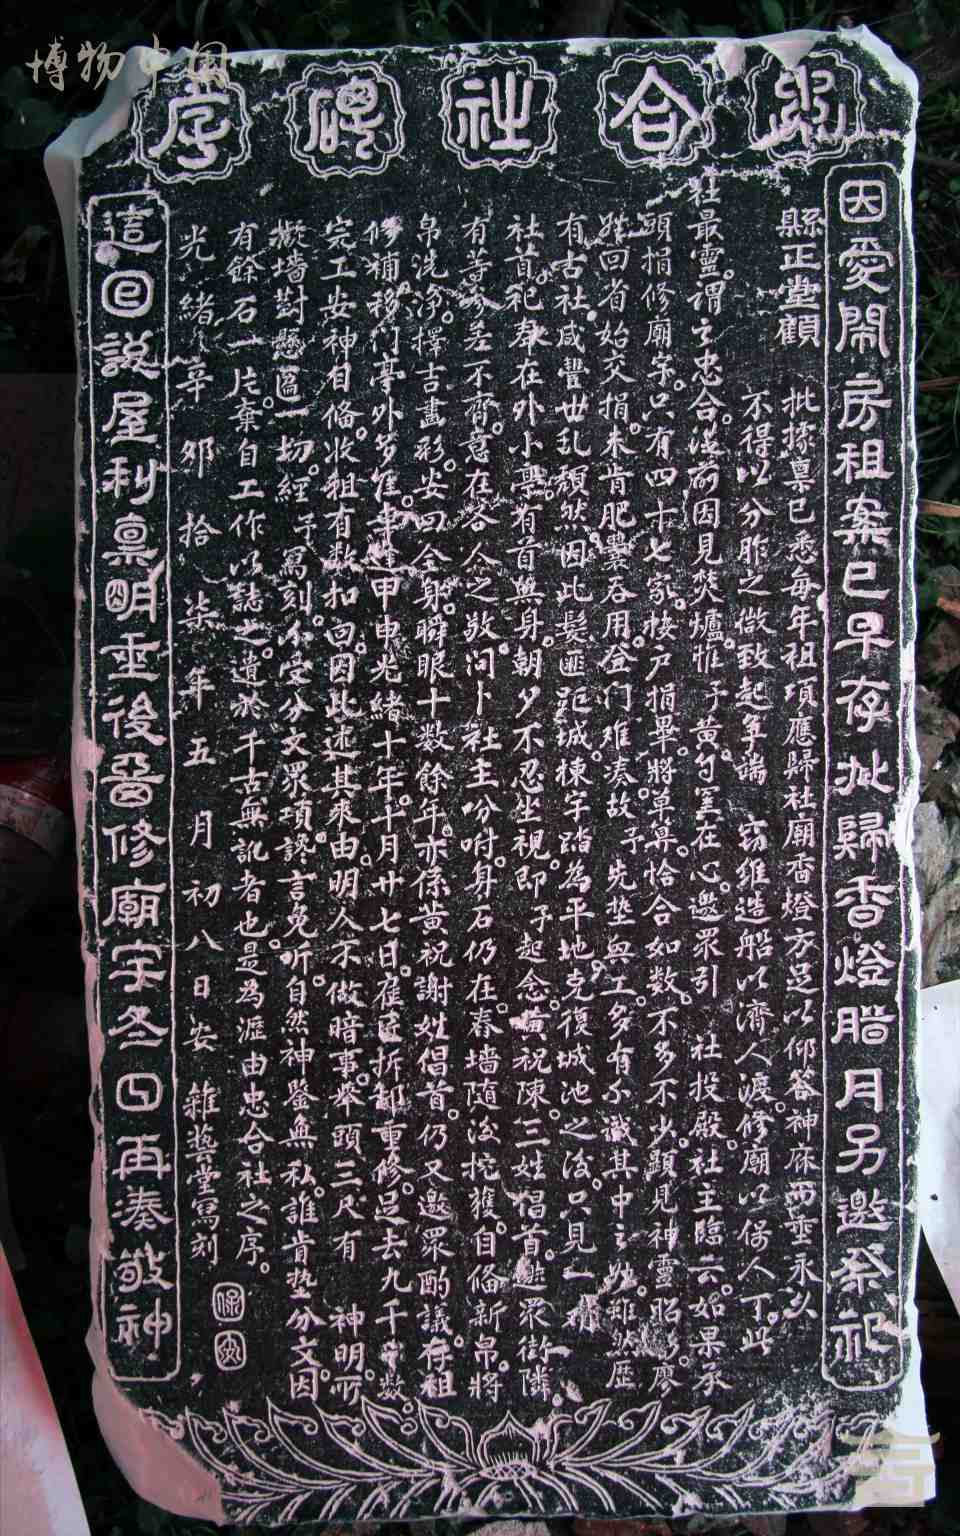 博物中国
忠合社碑序
因愛閙房祖案已早存批歸香燈腊月子邀祭祀
縣正堂顧 批據禀已悉每年祖項應歸社廟香燈方足以仰答神庥而垂永久
不得以分胙之微致起争端 窃維造船以濟人渡。修廟以保人丁。此
社最靈。謂之忠合。溪前因見焚爐惟予黄。勺罣在心。邀眾引 社投殿。社主臨云。如果承
頭捐修廟宇。只有四十七家。挨户捐畢。將草算。恰合如数。不多不少。顯見神靈昭彰。廖
姓回省始交捐。未肯肥囊吞用。登门难湊。故予先垫與工。多有不識其中之 雖然歷
有古社。咸豐世乱頹然。因此髮匪距城。棟宇踏為平地。克復城池之後。只見一
社首。祀奉在外小亭。有首無身。朝夕不忍坐視。即予起念。黄祝陳。三姓倡首。邀眾衛隣。
有等参差不齊。意在各人之敬。问卜社主吩咐。身石仍在。春墙隨後挖獲。自俻新帛。將
帛洗净。擇吉畫彩。安回全身。瞬眼十数餘年。亦係黄祝謝姓倡首。仍又邀眾酌議。存祖
修補。移门亭外 甲申光緒十年。十月廿七日。雇匠拆卸重修。足去九千 数。
完工安神自俻。收租有数扣回。因此述其來由。明人不做暗事。举頭三尺有 神明。所
擬墙對懸匾一切。經予寫刻。不受分文眾項。謗言免听。自然神鑒無私。誰肯垫分文。因
有餘石一片。棄自工作以誌之。遺於千古無訛者也。是為涯由忠合社之序。
光緒辛夘拾柒年五月初八日安 雜藝堂寫刻
這回説屋利禀明垂後啚修廟宇冬日再湊敬神